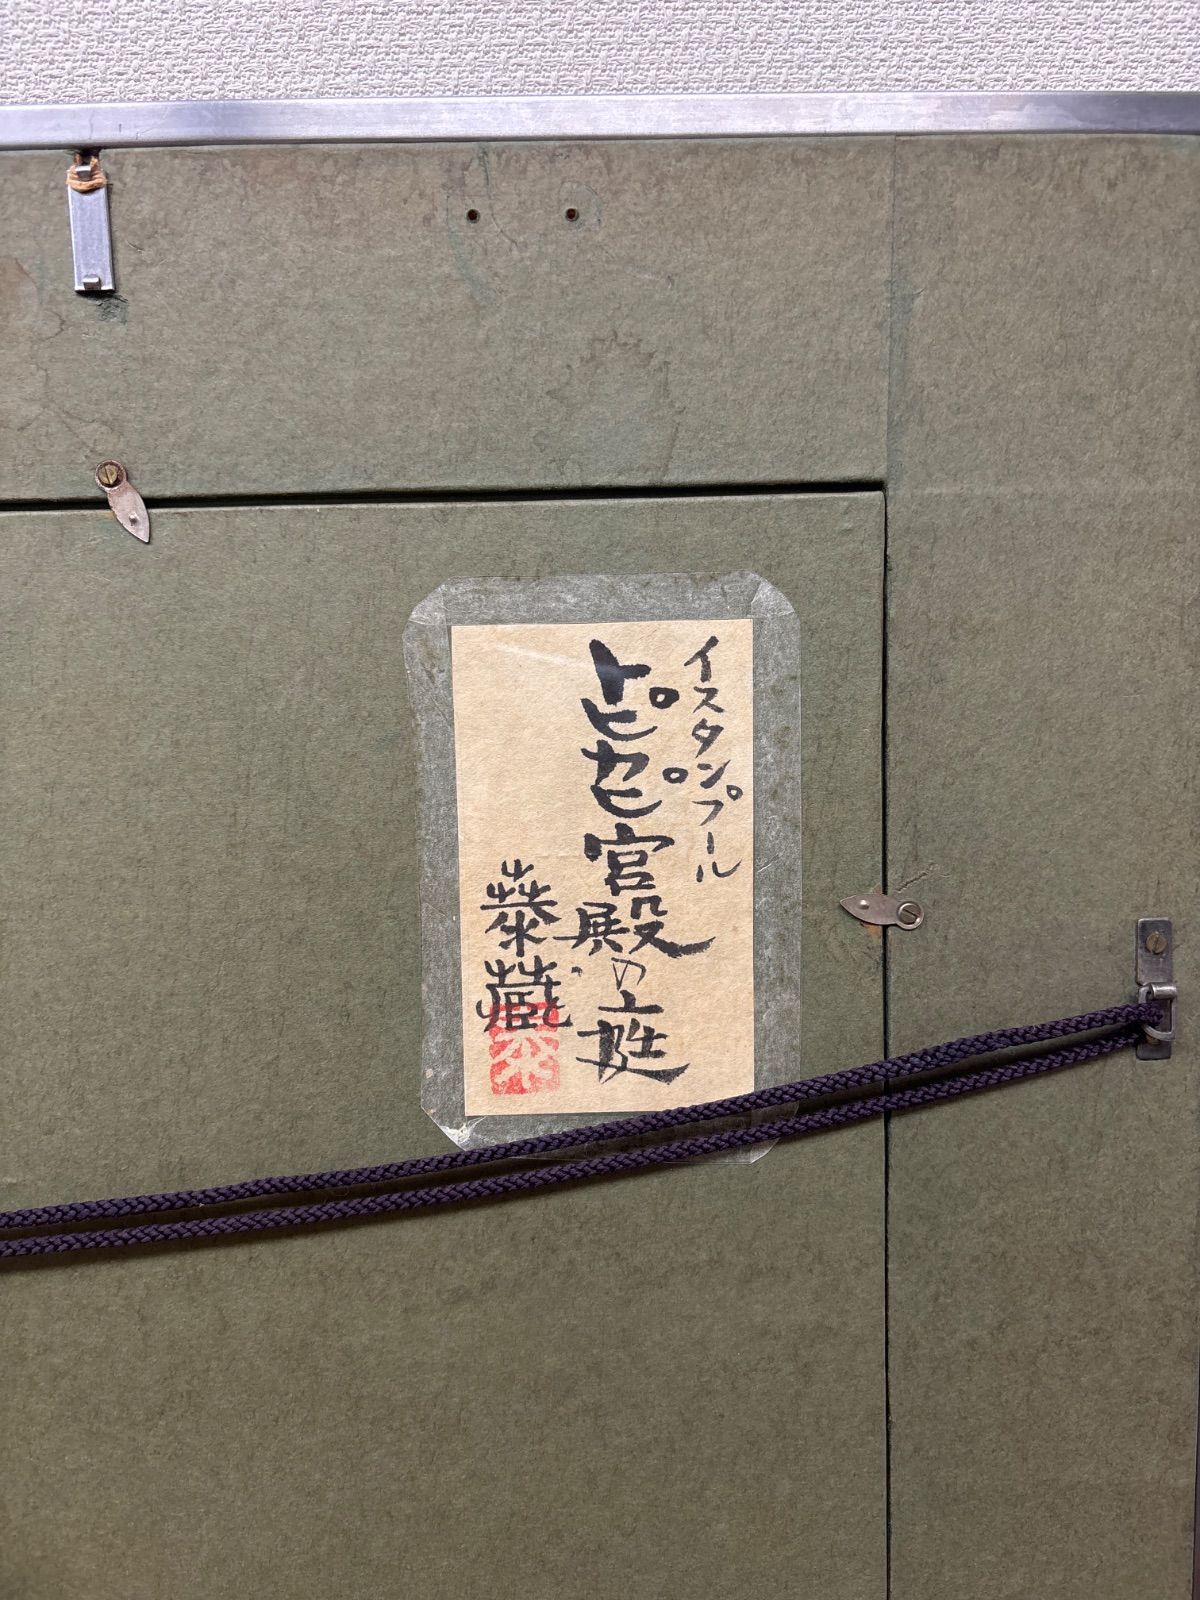 イスタンプール
トピカピ宮殿の
泰藏